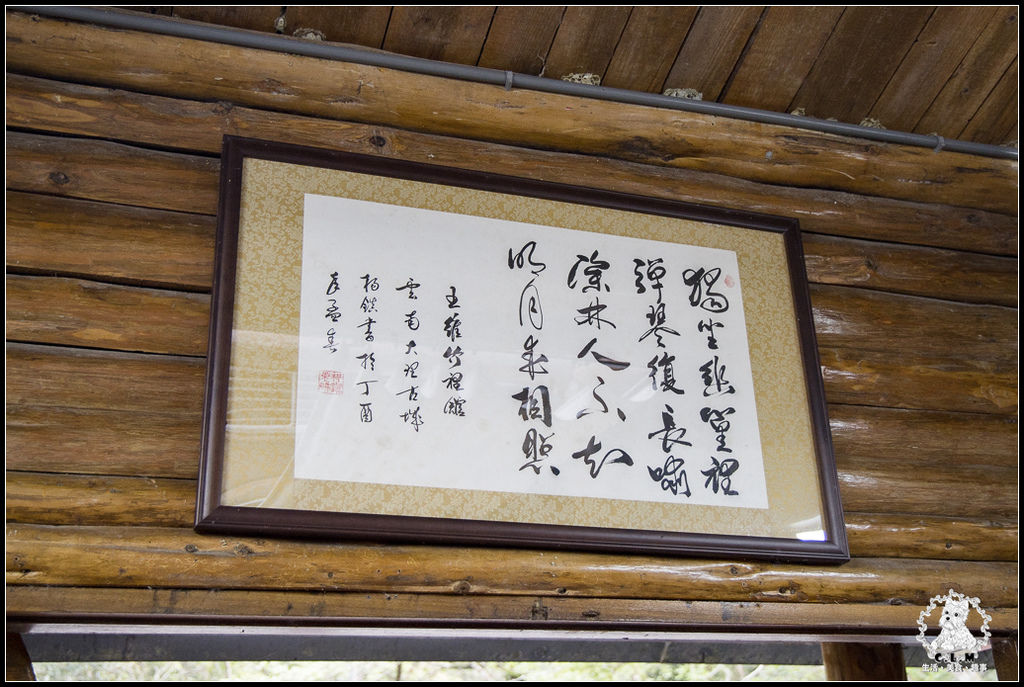 獨坐幽篁裡
彈琴復長嘯
深林人不知
明月來相照
王維竹裡館
雲南大理古城
楊鎮書於丁酉
年孟春
生活、美食、趣事